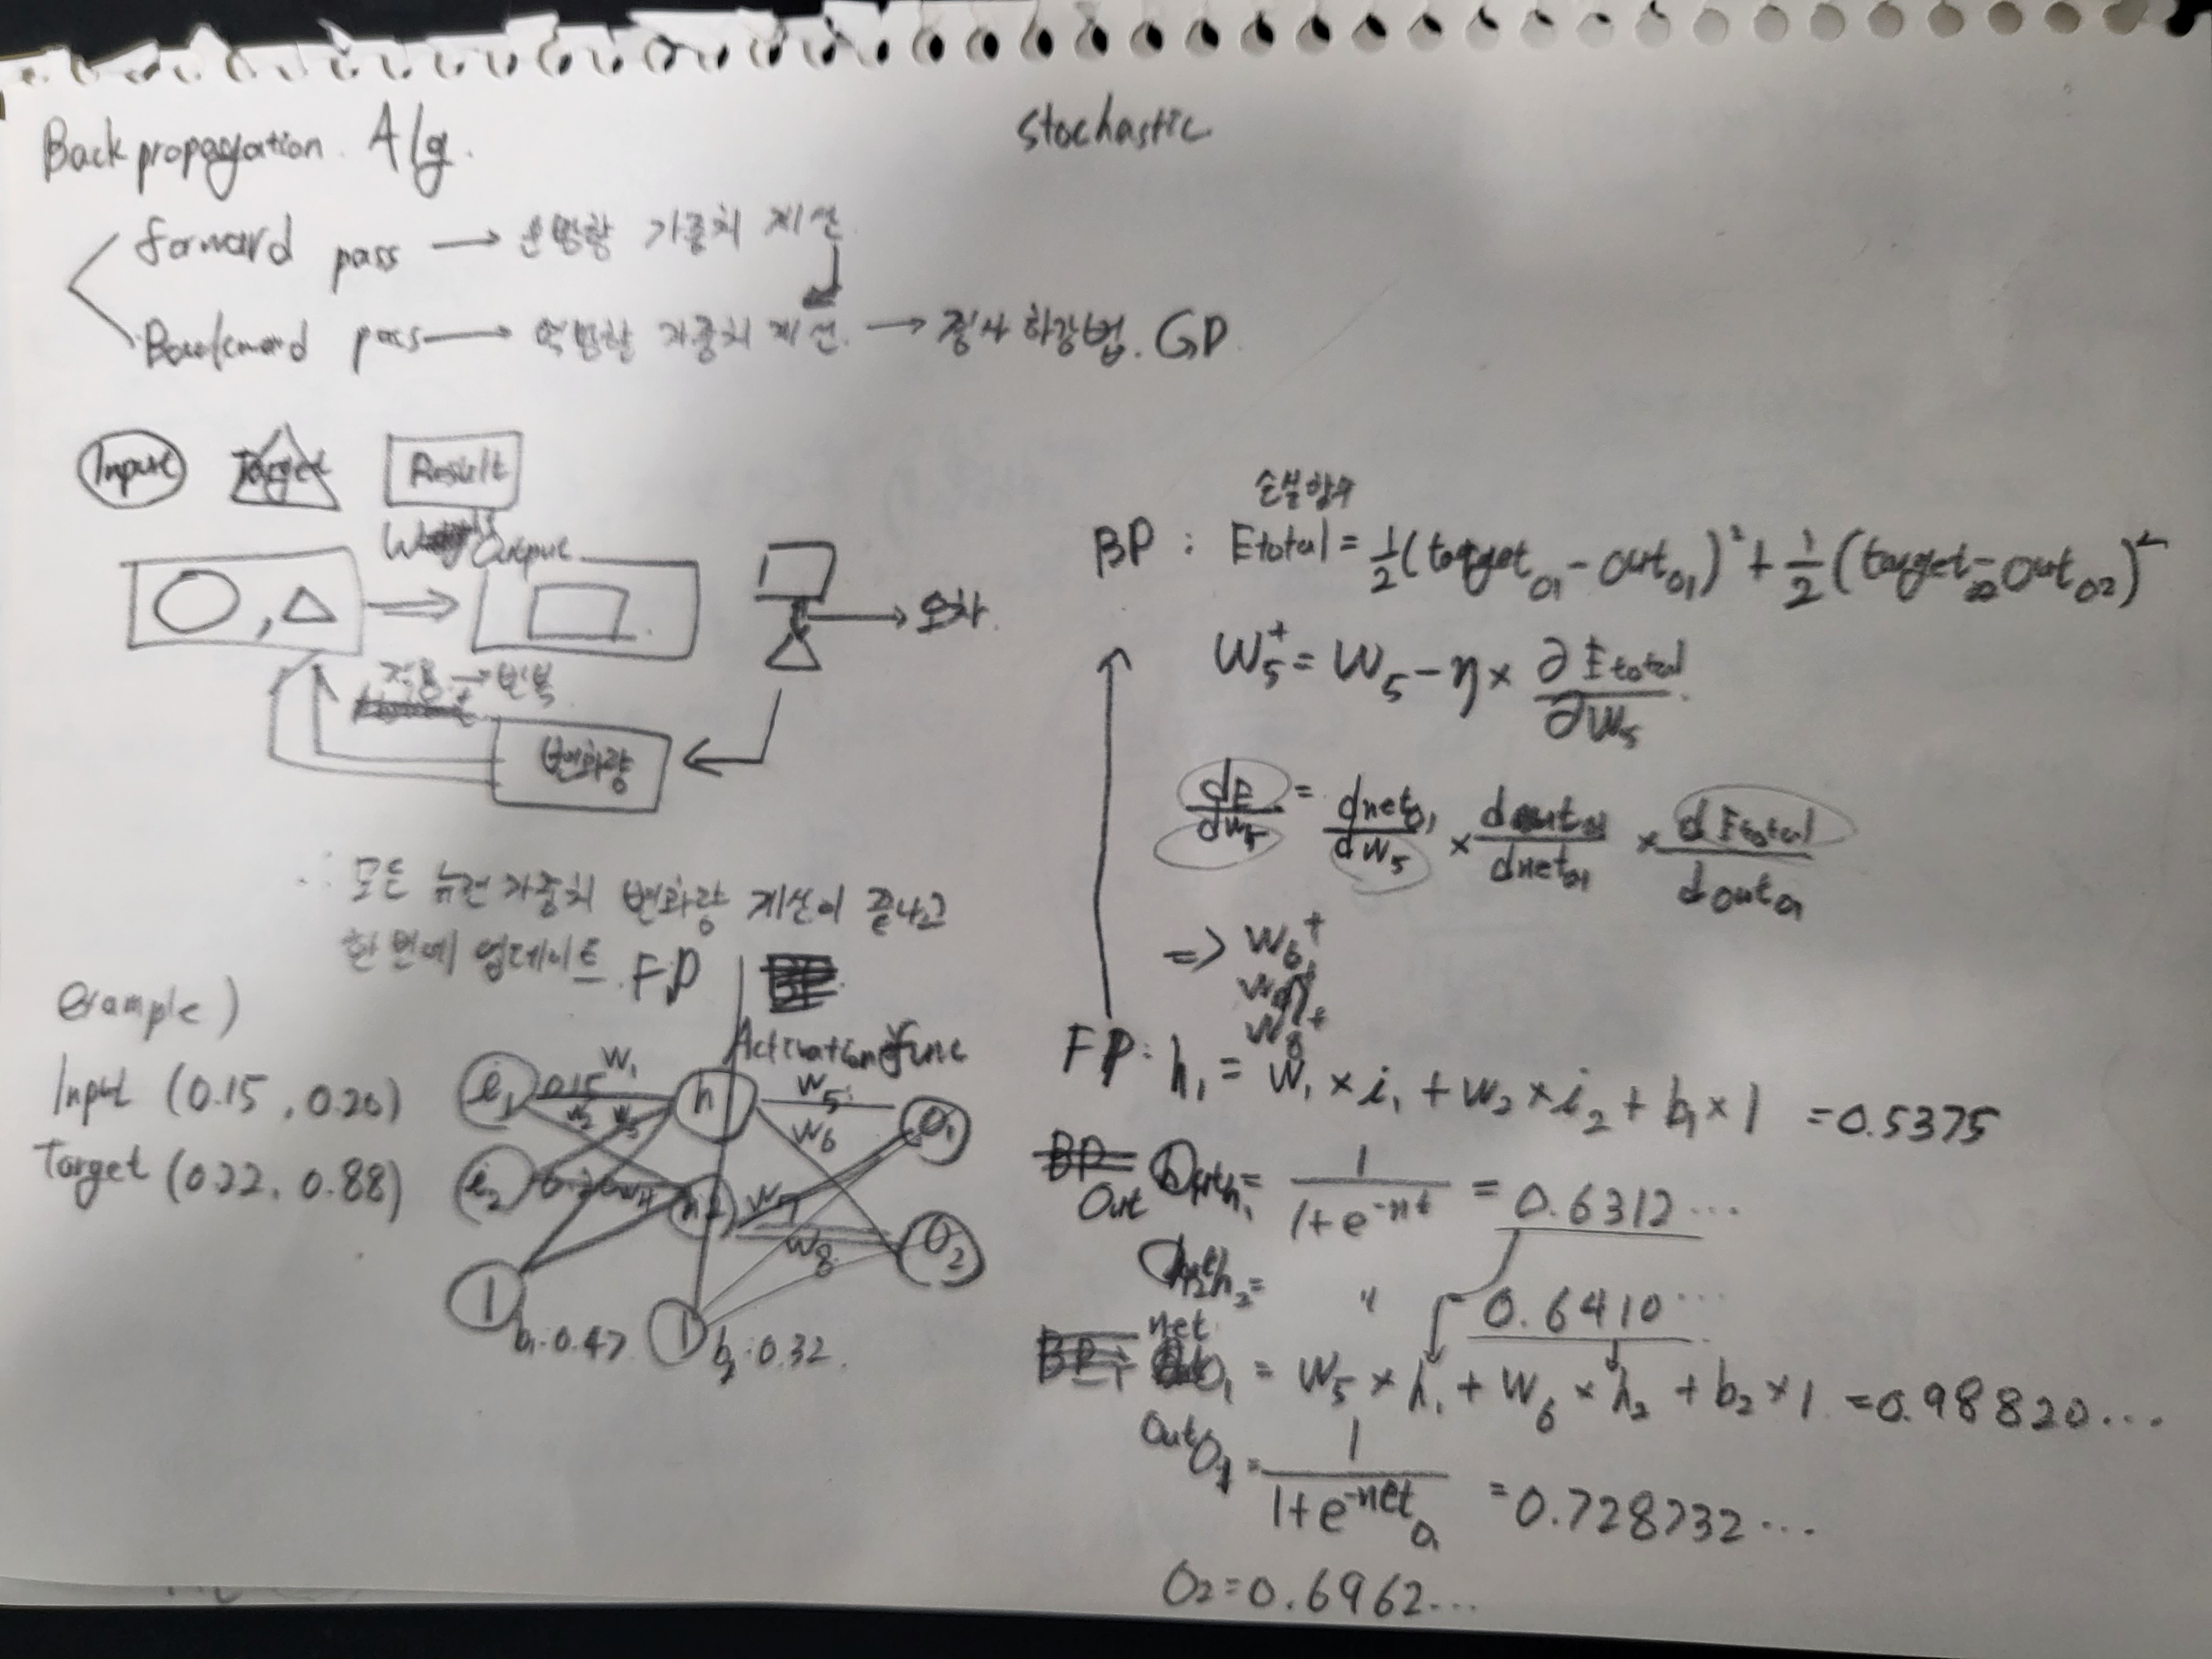 Back propagation. Alg.
Stochastic
forward pass → 순방향 가중치 계산
Backward pass → 역방향 가중치 계산. → 경사 하강법. GD
Input Target Result
Output
→ 오차
적용 → 반복
변화량
∴ 모든 뉴런 가중치 변화량 계산이 끝나고
한 번에 업데이트. FP
Activation func
example)
Input (0.15, 0.20)
Target (0.22, 0.88)
i₁ 0.15 W₁ h₁ W₅ O₁
W₂ W₃ W₆
i₂ W₄ h₂ W₇ O₂
W₈
1 b₁:0.47 1 b₂:0.32.
손실함수
BP : Etotal = 1/2(target_o1 - out_o1)² + 1/2(target_o2 - out_o2)²
W₅⁺ = W₅ - η × ∂Etotal/∂W₅
dE/dw₅ = dnet_o1/dW₅ × dout_o1/dnet_o1 × dEtotal/dout_o1
=> W₆⁺
W₇⁺
W₈⁺
FP: h₁ = W₁ × i₁ + W₂ × i₂ + b₁ × 1 = 0.5375
Out h₁ = 1/(1+e^-net) = 0.6312...
h₂ = " 0.6410...
net O₁ = W₅ × h₁ + W₆ × h₂ + b₂ × 1 = 0.98820...
Out O₁ = 1/(1+e^-net_o1) = 0.728732...
O₂ = 0.6962...